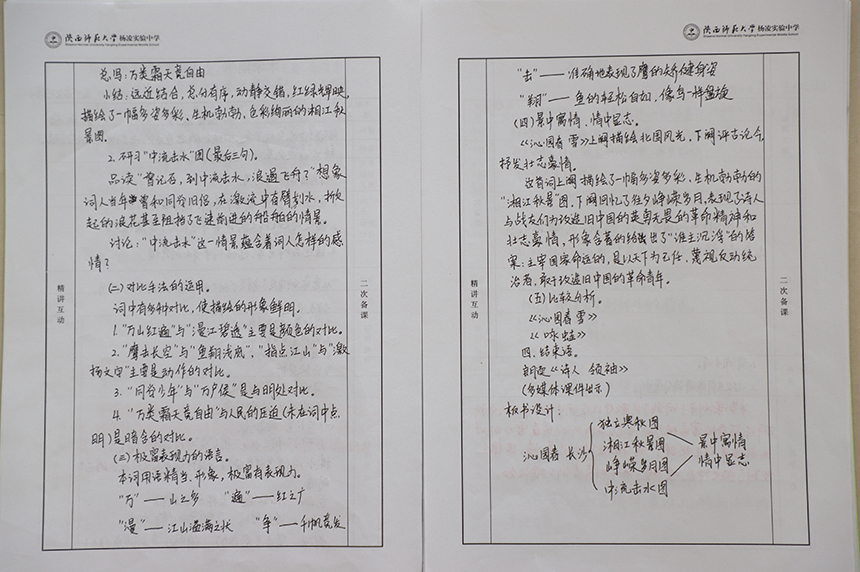 陕西师范大学 杨凌实验中学
Shaanxi Normal University Yangling Experimental Middle School
总写：万类霜天竞自由
小结：远近结合，总分有序，动静交错，红绿辉映，
描绘了一幅多姿多彩、生机勃勃、色彩绚丽的湘江秋
景图。
2. 研习“中流击水”图（最后三句）。
品读“曾记否，到中流击水，浪遏飞舟？”想象
词人当年曾和同学旧侣，在激流中奋臂划水，掀
起的浪花甚至阻挡了飞速前进的船舶的情景。
讨论：“中流击水”这一情景蕴含着词人怎样的感
情？
（二）对比手法的运用。
词中有多种对比，使描绘的形象鲜明。
1. “万山红遍”与“漫江碧透”主要是颜色的对比。
2. “鹰击长空”与“鱼翔浅底”，“指点江山”与“激
扬文字”主要是动作的对比。
3. “同学少年”与“万户侯”是与明处对比。
4. “万类霜天竞自由”与人民的压迫（未在词中点
明）是暗含的对比。
（三）极富表现力的语言。
本词用语精当、形象，极富有表现力。
“万”——山之多 “遍”——红之广
“漫”——江山溢满之状 “争”——千帆竞发
精讲互动
二次备课
陕西师范大学 杨凌实验中学
Shaanxi Normal University Yangling Experimental Middle School
“击”——准确地表现了鹰的矫健身姿
“翔”——鱼的轻松自如，像鸟一样盘旋
（四）景中寓情、情中显志。
《沁园春 雪》上阕描绘北国风光，下阕评古论今
抒发壮志豪情。
这首词上阕描绘了一幅多姿多彩、生机勃勃的
“湘江秋景”图，下阕回忆了往夕峥嵘岁月，表现了诗人
与战友们为改造旧中国的英勇无畏的革命精神和
壮志豪情，形象含蓄的给出了“谁主沉浮”的答
案：主宰国家命运的，是以天下为己任，蔑视反动统
治者，敢于改造旧中国的革命青年。
（五）比较分析。
《沁园春 雪》
《咏蛙》
四、结束语。
朗诵《诗人 领袖》
（多媒体课件出示）
板书设计：
沁园春 长沙
独立寒秋图
湘江秋景图
峥嵘岁月图
中流击水图
景中寓情
情中显志
精讲互动
二次备课